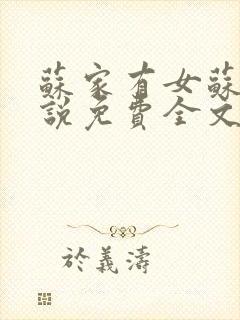 蘇家有女蘇
說免費全文
於義濤